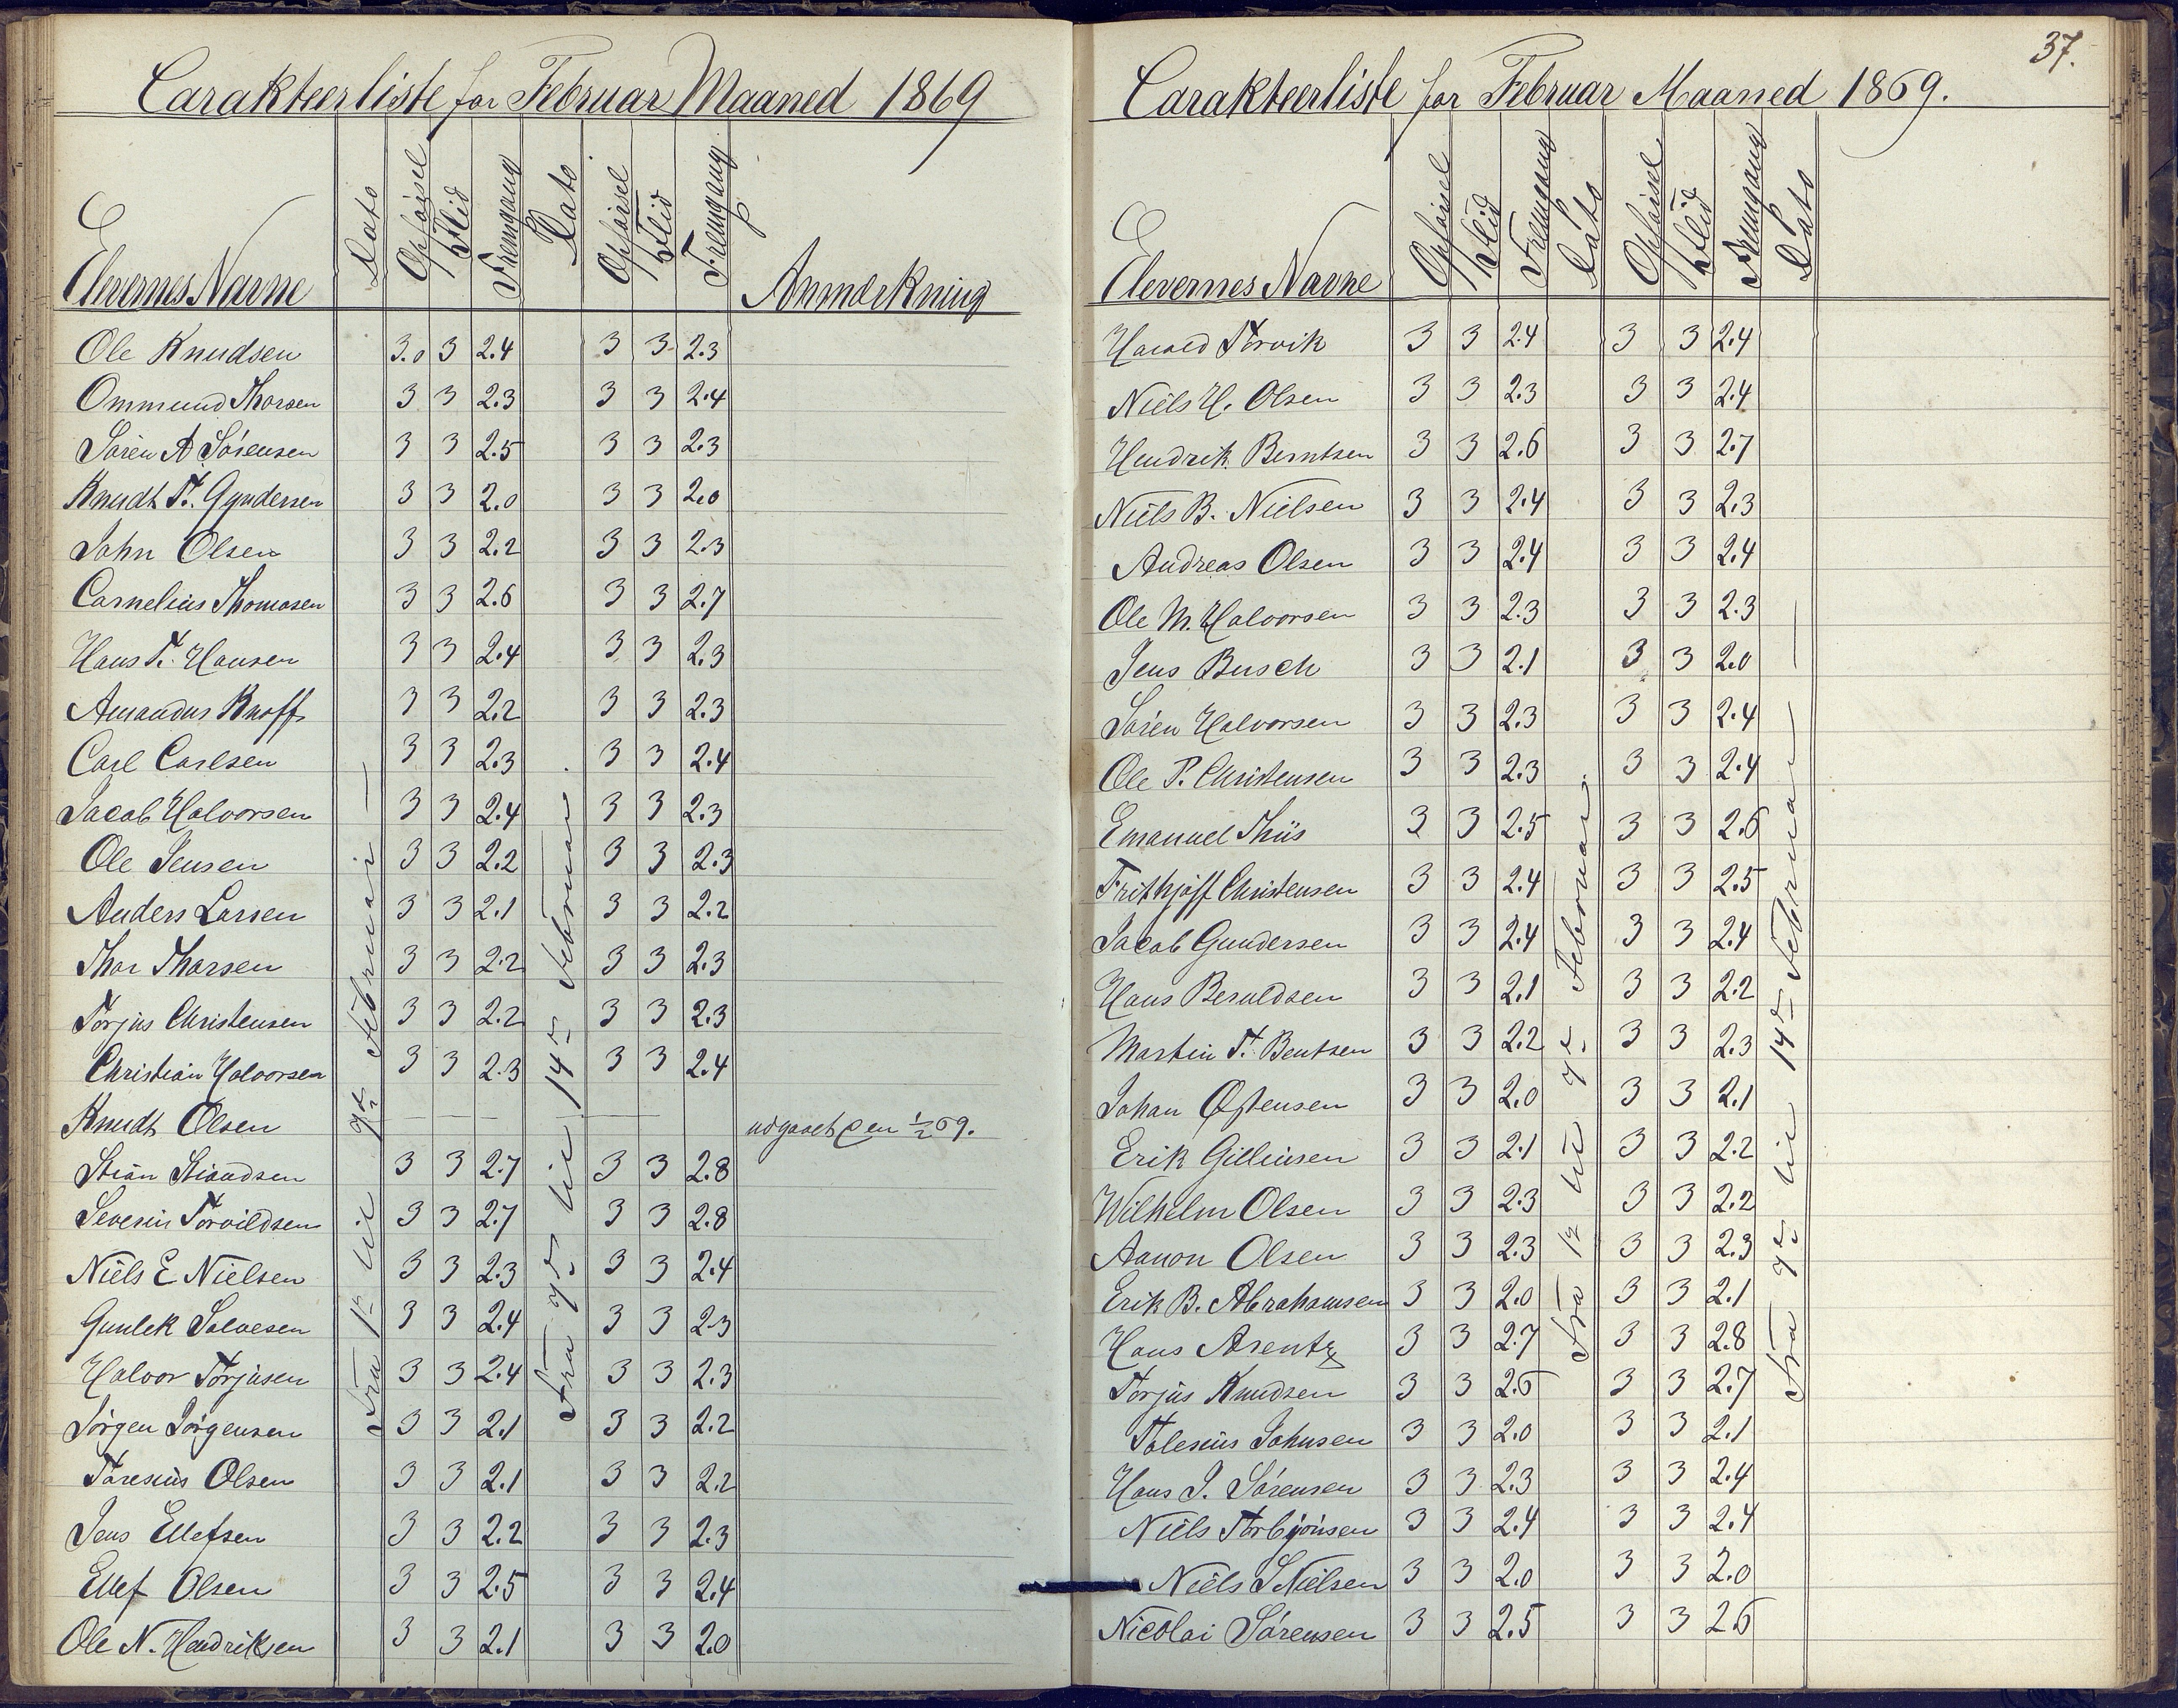 Carakteerliste for Februar Maaned 1869
Elevernes Navne Dato Opførsel Flid Fremgang Dato Opførsel Flid Fremgang Anmærkning
Fra 1ste til 7de Februar
Fra 7de til 14de Februar
Ole Knudsen 3.0 3 2.4 3 3 2.3
Ommund Thorsen 3 3 2.3 3 3 2.4
Søren A Sørensen 3 3 2.5 3 3 2.3
Knudt T. Gundersen 3 3 2.0 3 3 2.0
John Olsen 3 3 2.2 3 3 2.3
Cornelius Thomasen 3 3 2.6 3 3 2.7
Hans T. Hansen 3 3 2.4 3 3 2.3
Amandus Knoff 3 3 2.2 3 3 2.3
Carl Carlsen 3 3 2.3 3 3 2.4
Jacob Halvorsen 3 3 2.4 3 3 2.3
Ole Jensen 3 3 2.2 3 3 2.3
Anders Larsen 3 3 2.1 3 3 2.2
Thor Thorsen 3 3 2.2 3 3 2.3
Torjus Christensen 3 3 2.2 3 3 2.3
Christian Halvorsen 3 3 2.3 3 3 2.4
Knudt Olsen — — — — — udgaaet den 1/2 69.
Stian Stiandsen 3 3 2.7 3 3 2.8
Severin Torvildsen 3 3 2.7 3 3 2.8
Niels E Nielsen 3 3 2.3 3 3 2.4
Gunlek Salvesen 3 3 2.4 3 3 2.3
Halvor Torjusen 3 3 2.4 3 3 2.3
Jørgen Jørgensen 3 3 2.1 3 3 2.2
Taresius Olsen 3 3 2.1 3 3 2.2
Jens Ellefsen 3 3 2.2 3 3 2.3
Ellef Olsen 3 3 2.5 3 3 2.4
Ole N. Hendriksen 3 3 2.1 3 3 2.0
37.
Carakteerliste for Februar Maaned 1869.
Elevernes Navne Opførsel Flid Fremgang Dato Opførsel Flid Fremgang Dato
Fra 1ste til 7de Februar.
Fra 7de til 14de Februar
Harald Torvik 3 3 2.4 3 3 2.4
Niels H. Olsen 3 3 2.3 3 3 2.4
Hendrik Berntsen 3 3 2.6 3 3 2.7
Niels B. Nielsen 3 3 2.4 3 3 2.3
Andreas Olsen 3 3 2.4 3 3 2.4
Ole M. Halvorsen 3 3 2.3 3 3 2.3
Jens Busch 3 3 2.1 3 3 2.0
Søren Halvorsen 3 3 2.3 3 3 2.4
Ole P. Christensen 3 3 2.3 3 3 2.4
Emanuel Thiis 3 3 2.5 3 3 2.6
Frithjoff Christensen 3 3 2.4 3 3 2.5
Jacob Gundersen 3 3 2.4 3 3 2.4
Hans Beruldsen 3 3 2.1 3 3 2.2
Martin T. Bentsen 3 3 2.2 3 3 2.3
Johan Østensen 3 3 2.0 3 3 2.1
Erik Gilleusen 3 3 2.1 3 3 2.2
Wilhelm Olsen 3 3 2.3 3 3 2.2
Aanon Olsen 3 3 2.3 3 3 2.3
Erik B. Abrahamsen 3 3 2.0 3 3 2.1
Hans Arentz 3 3 2.7 3 3 2.8
Torjus Knudsen 3 3 2.6 3 3 2.7
Talesius Johnsen 3 3 2.0 3 3 2.1
Hans J. Sørensen 3 3 2.3 3 3 2.4
Niels Torbjønsen 3 3 2.4 3 3 2.4
Niels S Nielsen 3 3 2.0 3 3 2.0
Nicolai Sørensen 3 3 2.5 3 3 2.6